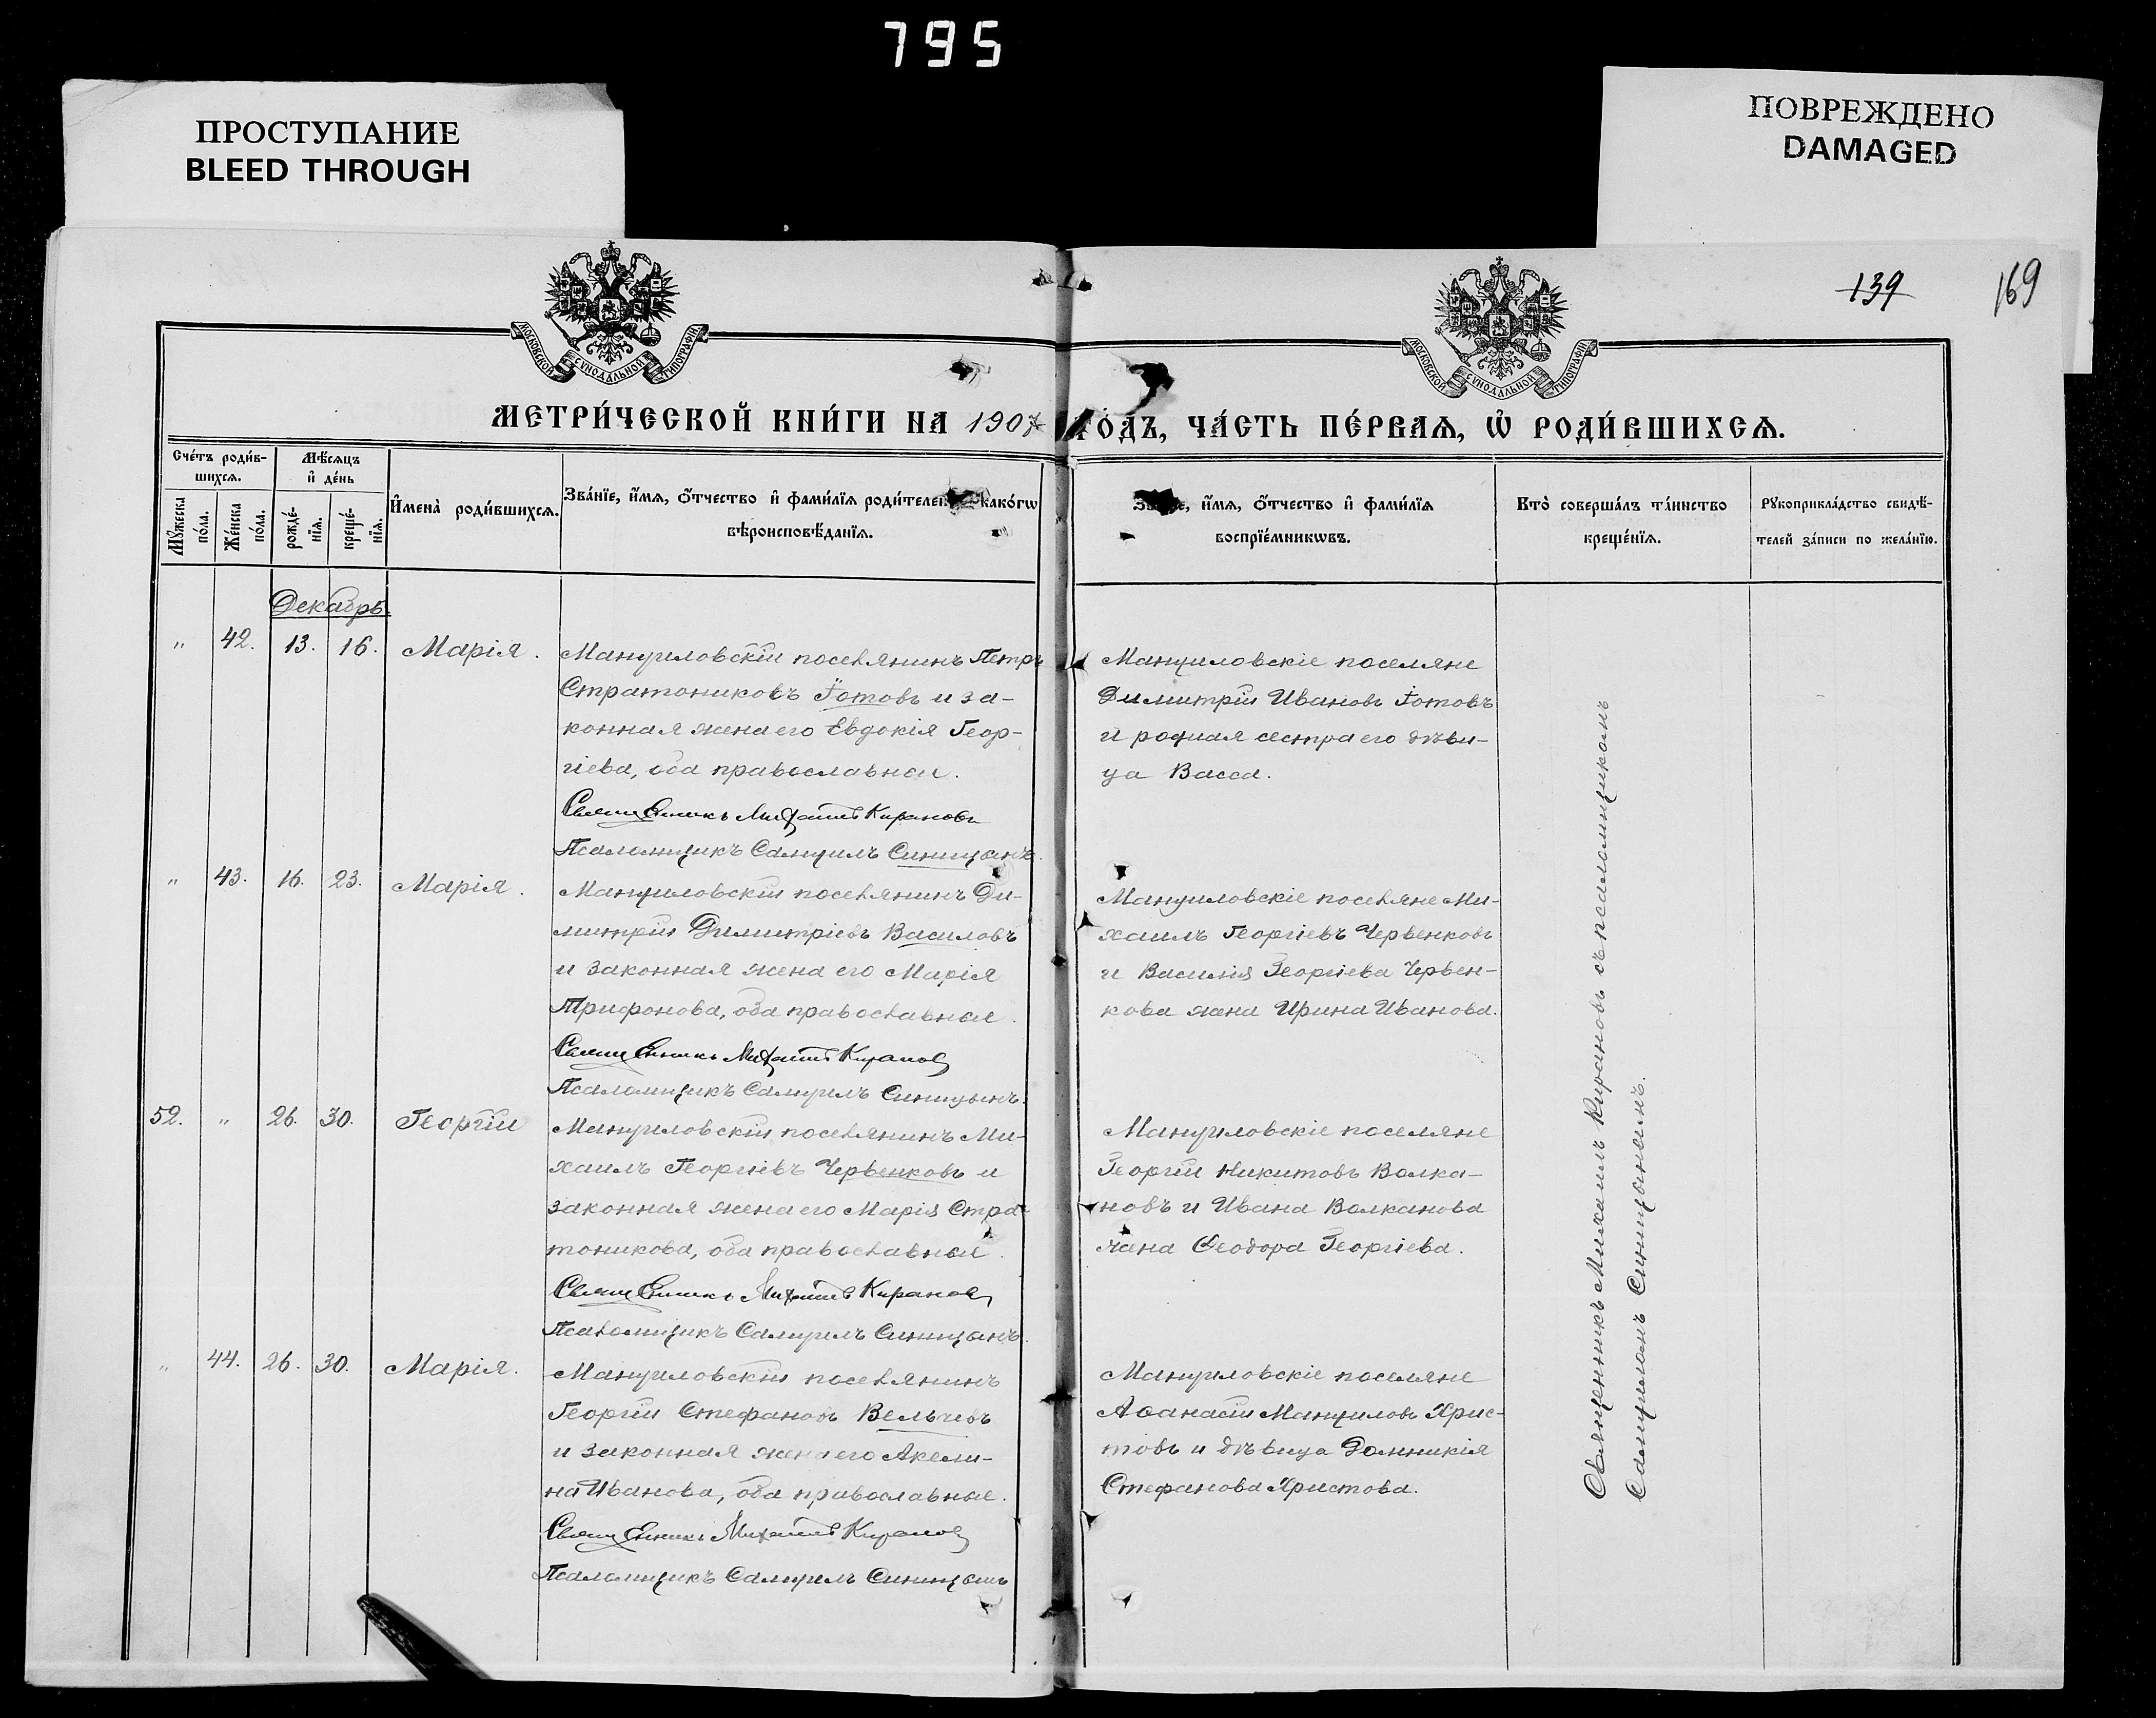 795
ПРОСТУПАНИЕ
BLEED THROUGH
ПОВРЕЖДЕНО
DAMAGED
139
169
МОСКОВСКОЙ СѴНОДАЛЬНОЙ ТИПОГРАФІИ
МОСКОВСКОЙ СѴНОДАЛЬНОЙ ТИПОГРАФІИ
МЕТРИ́ЧЕСКОЙ КНИ́ГИ НА 1907 ГО́ДЪ, ЧА́СТЬ ПЕ́РВАѦ, Ѡ҆ РОДИ́ВШИХСѦ.
Сче́тъ роди́в-
шихсѧ.
Мѣ́сѧцъ
и҆ де́нь
Мꙋ́жеска
по́ла.
Же́нска
по́ла.
рожде́-
нїѧ.
креще́-
нїѧ.
И҆мена̀ роди́вшихсѧ.
Зва́нїе, и҆́мѧ, ѻ҆́тчество и҆ фами́лїѧ роди́телей како́гѡ
вѣроисповѣ́данїѧ.
и҆́мѧ, ѻ҆́тчество и҆ фами́лїѧ
воспрїе́мникѡвъ.
Кто̀ соверша́лъ та́инство
креще́нїѧ.
Рꙋкоприкла́дство свидѣ́-
телей за́писи по жела́нїю.
Декабрь.
" 42. 13. 16. Марія.
Мануиловскій поселянинъ Петръ
Стратониковъ Ѳотовъ и за-
конная жена его Евдокія Геор-
гіева, оба православные.
Священникъ Михаилъ Кирановъ
Псаломщикъ Самуилъ Синицынъ.
Мануиловскіе поселяне
Димитрій Ивановъ Ѳотовъ
и родная сестра его дѣви-
ца Васса.
" 43. 16. 23. Марія.
Мануиловскій поселянинъ Ди-
митрій Димитріевъ Василовъ
и законная жена его Марія
Трифонова, оба православные.
Священникъ Михаилъ Кирановъ
Псаломщикъ Самуилъ Синицынъ.
Мануиловскіе поселяне Ми-
хаилъ Георгіевъ Червенковъ
и Василія Георгіева Червен-
кова жена Ирина Иванова.
52. " 26. 30. Георгій
Мануиловскій поселянинъ Ми-
хаилъ Георгіевъ Червенковъ и
законная жена его Марія Стра-
тоникова, оба православные.
Священникъ Михаилъ Кирановъ
Псаломщикъ Самуилъ Синицынъ.
Мануиловскіе поселяне
Георгій Никитовъ Волка-
новъ и Ивана Волканова
жена Ѳеодора Георгіева.
" 44. 26. 30. Марія.
Мануиловскій поселянинъ
Георгій Стефановъ Вельчевъ
и законная жена его Акели-
на Иванова, оба православные.
Священникъ Михаилъ Кирановъ
Псаломщикъ Самуилъ Синицынъ
Мануиловскіе поселяне
Аѳанасій Мануиловъ Хрис-
товъ и дѣвица Домникія
Стефанова Христова.
Священникъ Михаилъ Кирановъ съ псаломщикомъ
Самуиломъ Синицынымъ.